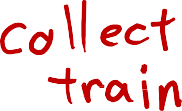 collect
train